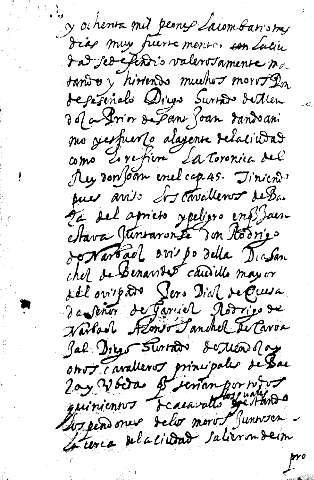 y ochenta mil peones la combatio tres
dias muy fuertemente con la ciu
dad se defendio valerosamente ma
tando y hiriendo muchos moros Don
de se señalo Diego Hurtado de Men
doza Prior de San Joan dando ani
mo y esfuerço a la gente de la ciudad
como lo refiere La Coronica del
Rey don Joan en el cap. 45. Tiniendo
pues aviso los cavalleros de Bae
ça del aprieto y peligro en q Jaen
estava Juntaronse don Rodrigo
de Narbaez ovispo della Dia San
chez de Benavides caudillo mayor
del ovispado Pero Diaz de Quesa
da señor de Garciez Rodrigo de
Narbaez Alonso Sanchez de Carva
jal Diego Hurtado de Mendoza y
otros cavalleros principales de Bae
za y Ubeda q serian por todos
quinientos de a cavallo los quales estando
los pendones de los moros Juntos en
la cerca de la ciudad salieron de im
pro